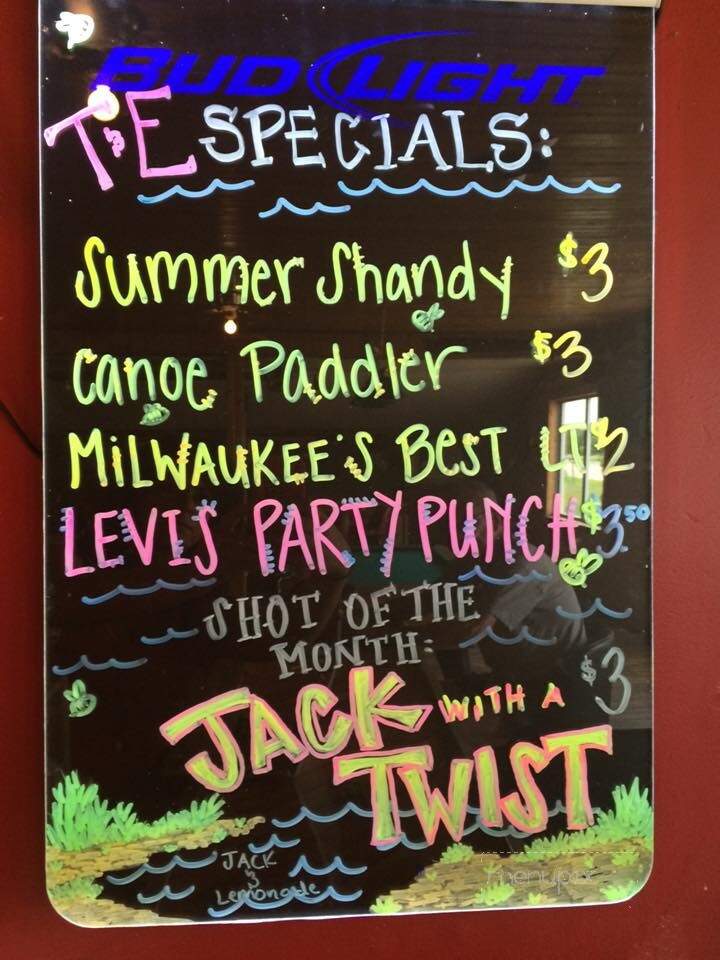 BUD LIGHT
T&E SPECIALS:
Summer Shandy $3
Canoe Paddler $3
MILWAUKEE'S BEST LT $2
LEVIS PARTY PUNCH $3.50
SHOT OF THE
MONTH: $3
JACK WITH A
TWIST
JACK
&
Lemonade
menupix